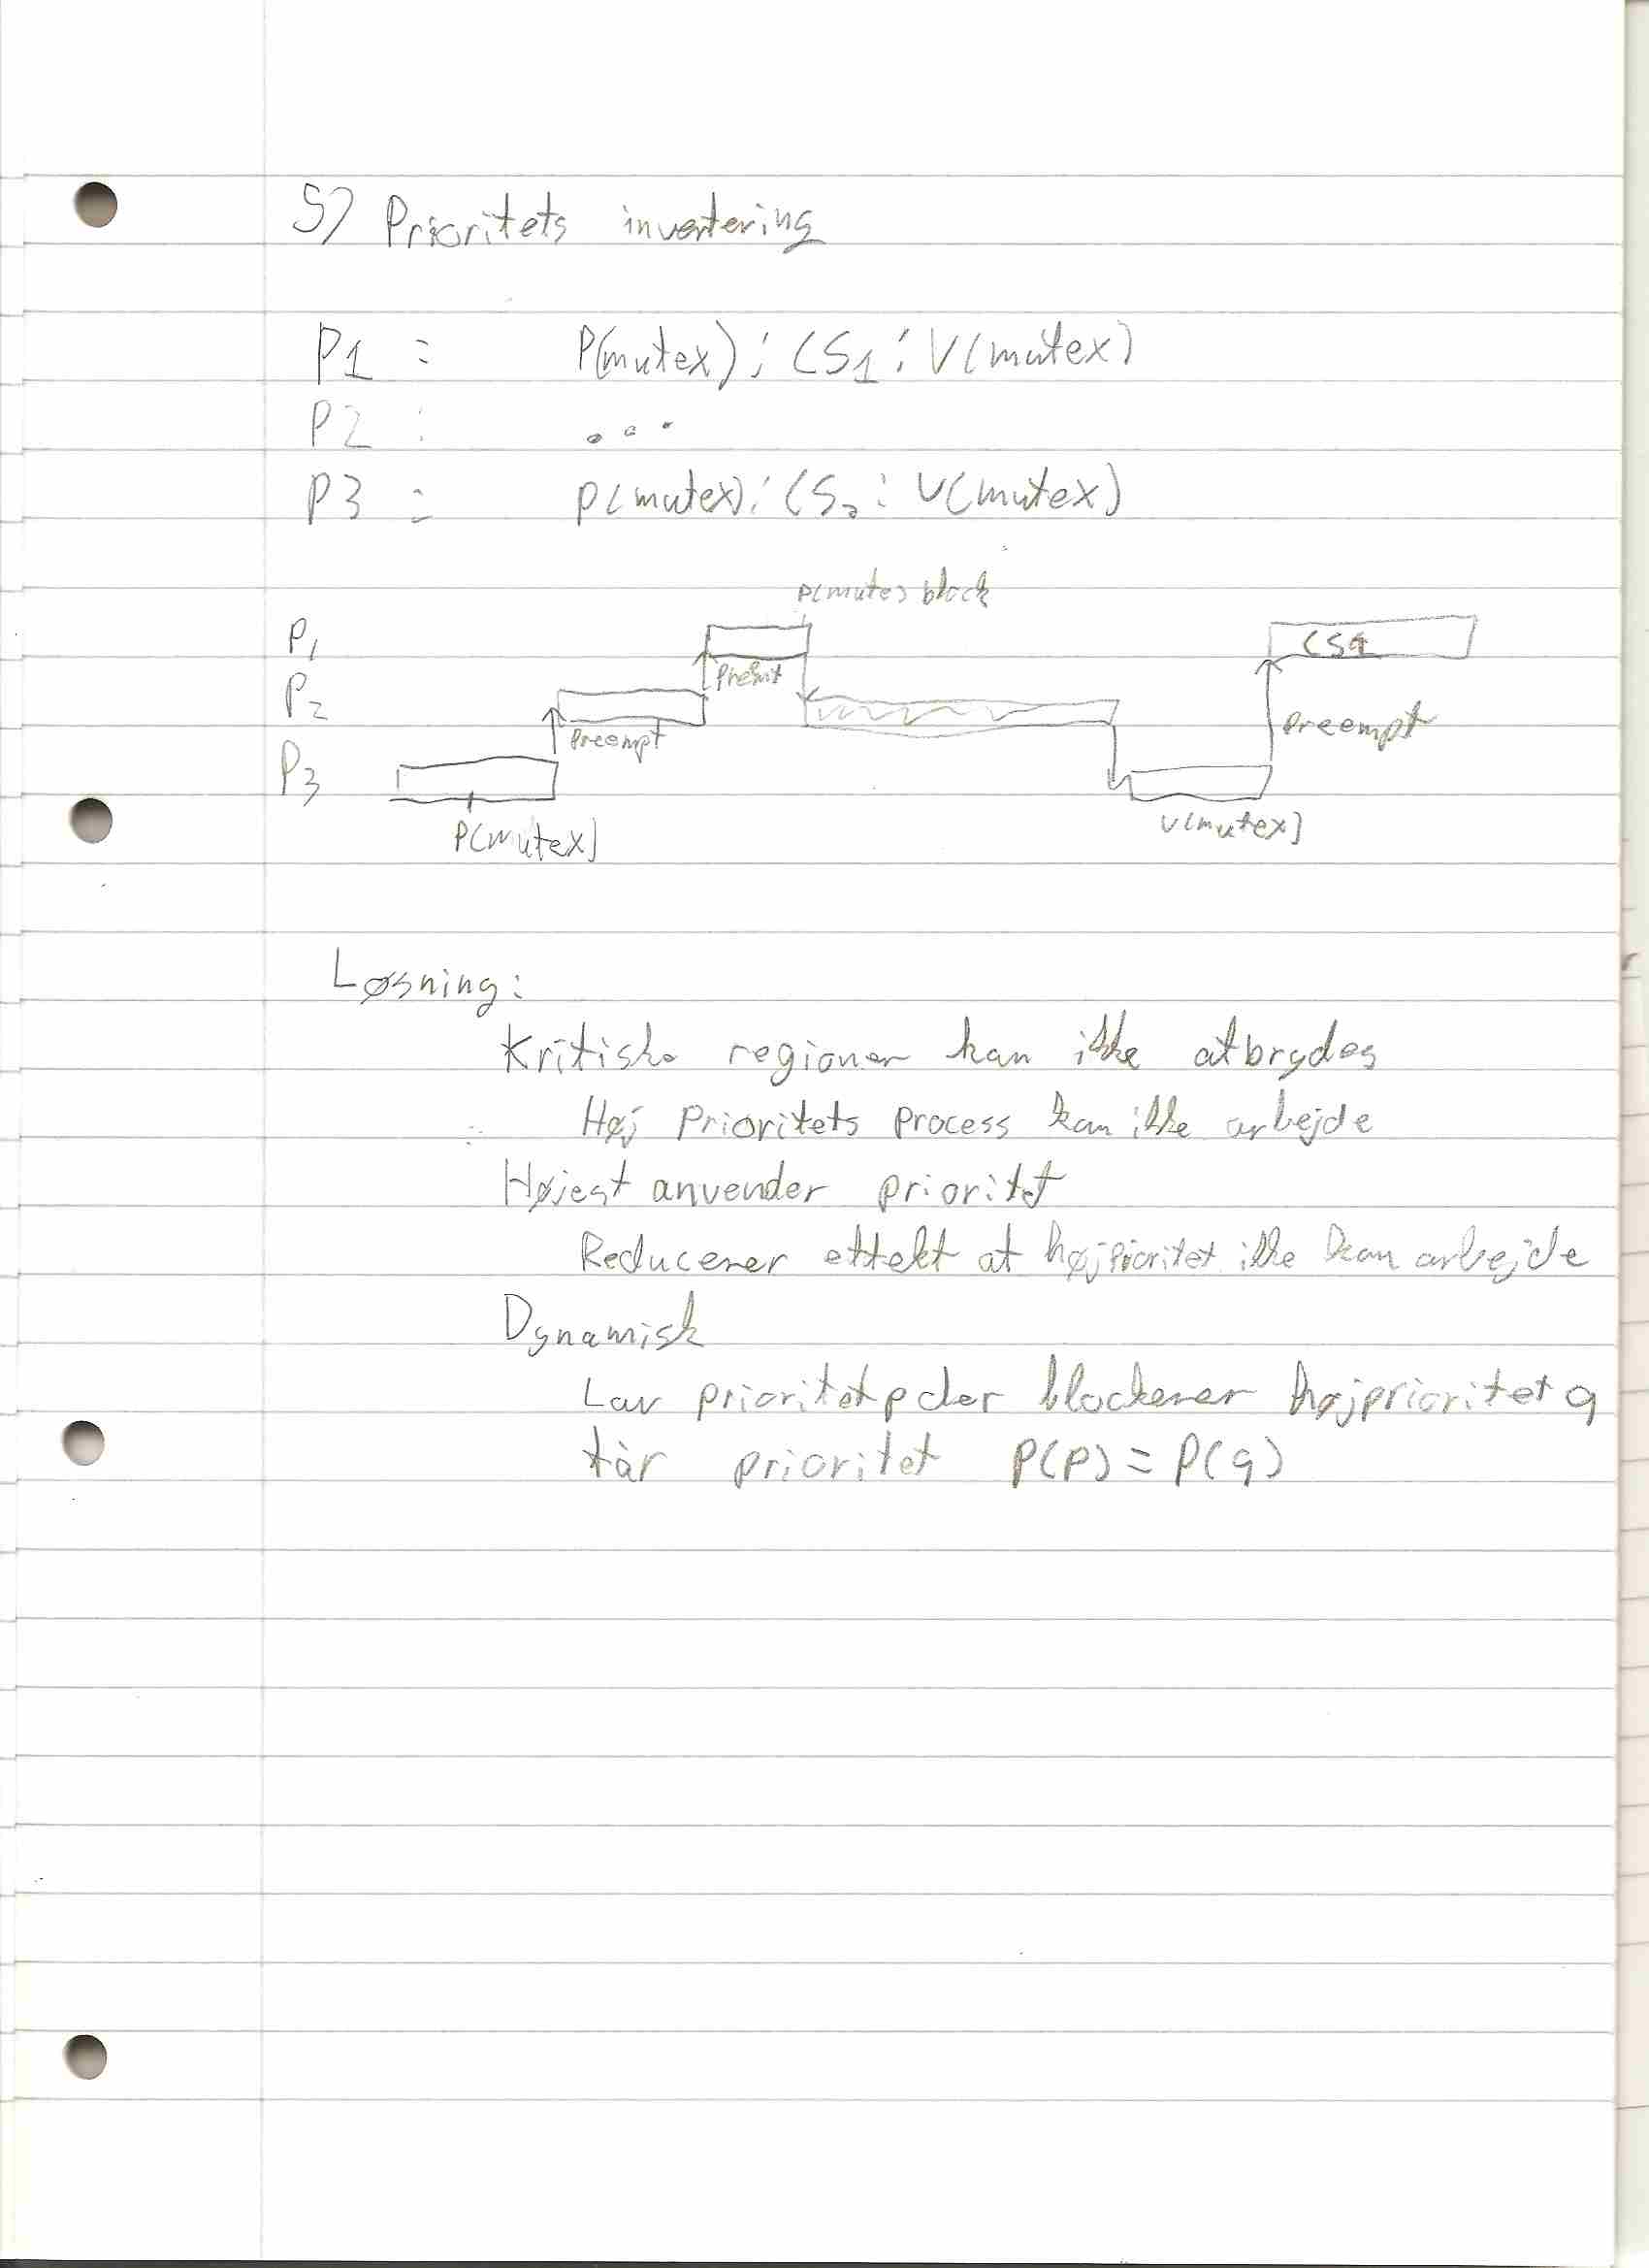 5) Prioritets invertering
P1 : P(mutex); CS1; V(mutex)
P2 : ...
P3 : P(mutex); CS2; V(mutex)
P(mutex) block
P1 CS1
Preemt
P2 Preempt
Preempt
P3
P(mutex) V(mutex)
Løsning:
Kritiske regioner kan ikke afbrydes
Høj prioritets process kan ikke arbejde
Højest anvender prioritet
Reducerer effekt af højprioritet ikke kan arbejde
Dynamisk
Lav prioritet p der blockerer højprioritet q
får prioritet P(p) = P(q)